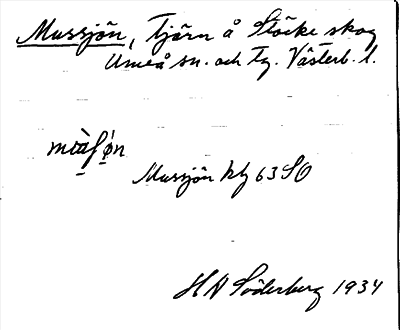 Mussjön, tjärn å Stöcke skog
Umeå sn. och tg. Västerb. l.
Mussjön kbl 63 SO
H A Söderberg 1934